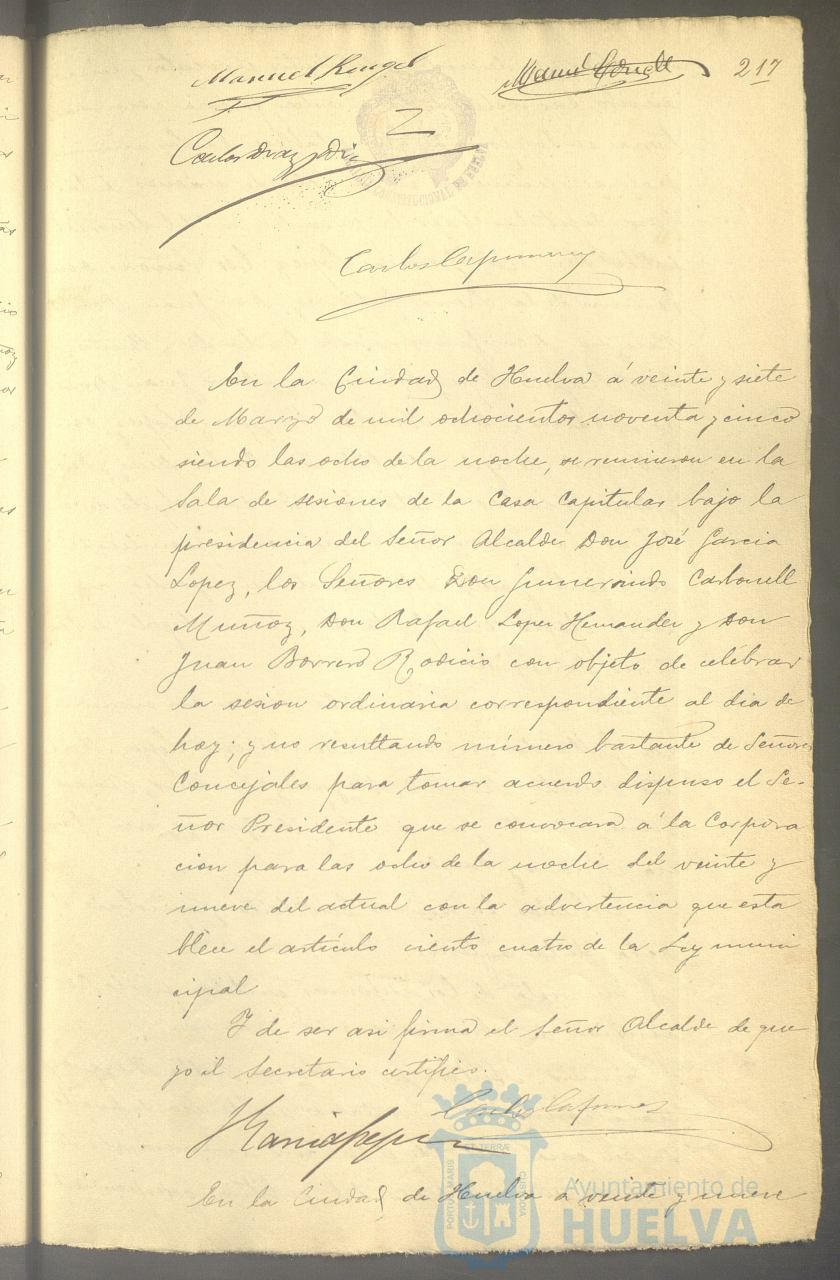 Manuel Rengel
217
Carlos Diaz
Carlos
En la Ciudad de Huelva á veinte y siete
de Marzo de mil ochocientos noventa y cinco
siendo las ocho de la noche, se reunieron en la
Sala de sesiones de la Casa Capitular bajo la
presidencia del Señor Alcalde Don José Garcia
Lopez, los Señores Don Gumersindo Carbonell
Muñoz, Don Rafael Lopez Hernandez y Don
Juan Borrero Rodicio con objeto de celebrar
la sesion ordinaria correspondiente al dia de
hoy; y no resultando número bastante de Señores
Concejales para tomar acuerdo dispuso el Se-
ñor Presidente que se convocara á la Corpora
cion para las ocho de la noche del veinte y
nueve del actual con la advertencia que esta
blece el artículo ciento cuatro de la Ley muni
cipal
Y de ser asi firma el Señor Alcalde de que
yo el Secretario certifico.
En la Ciudad de Huelva a veinte y nueve
PORTUS MARIS ET TERRÆ CUSTODIA
Ayuntamiento de
HUELVA